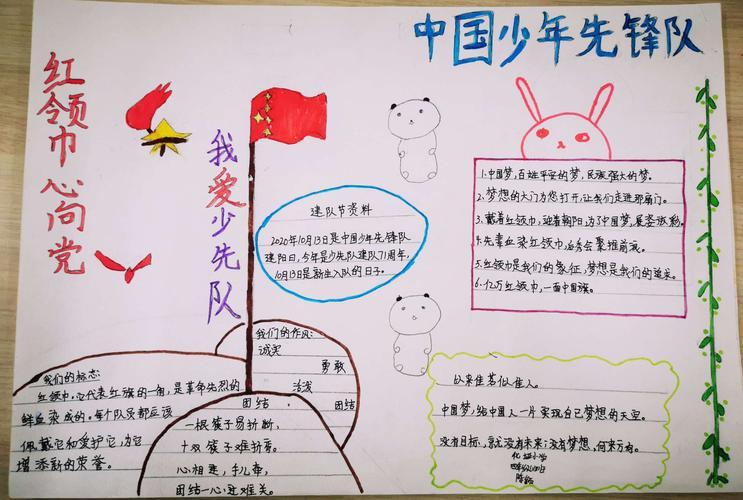 中国少年先锋队
红领巾心向党
我爱少先队
建队节资料
2020年10月13日是中国少年先锋队
建阳日,今年是少先队建队71周年,
10月13日是新生入队的日子。
1.中国梦,百姓平安的梦,民族强大的梦。
2.梦想的大门为您打开,让我们走进那扇门。
3.戴着红领巾,迎着朝阳,为了中国梦,展姿
4.先辈血染红领巾,后秀会聚祖前哀。
5.红领巾是我们的象征,梦想是我们的追求。
6.亿万红领巾,一面中国旗。
我们的作风:
诚实
勇敢
活泼
团结
我们的标志:
红领巾,它代表红旗的一角,是革命先烈的
鲜血染成的。每个队员都应该
佩戴它和爱护它,为它
增添新的荣誉。
团结.
一根筷子易折断,
十双筷子难折弯。
心相连,手儿牵,
团结一心过难关。
从来佳茗似佳人。
中国梦,给中国人一片实现自己梦想的天空。
没有目标,就没有未来;没有梦想,何来方向。
小学